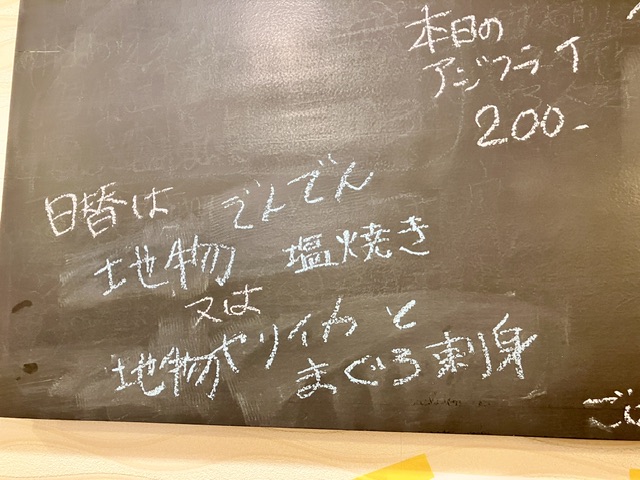 本日の
アジフライ
200-
日替は でんでん
地物 塩焼き
又は
地物ヤリイカと
まぐろ刺身